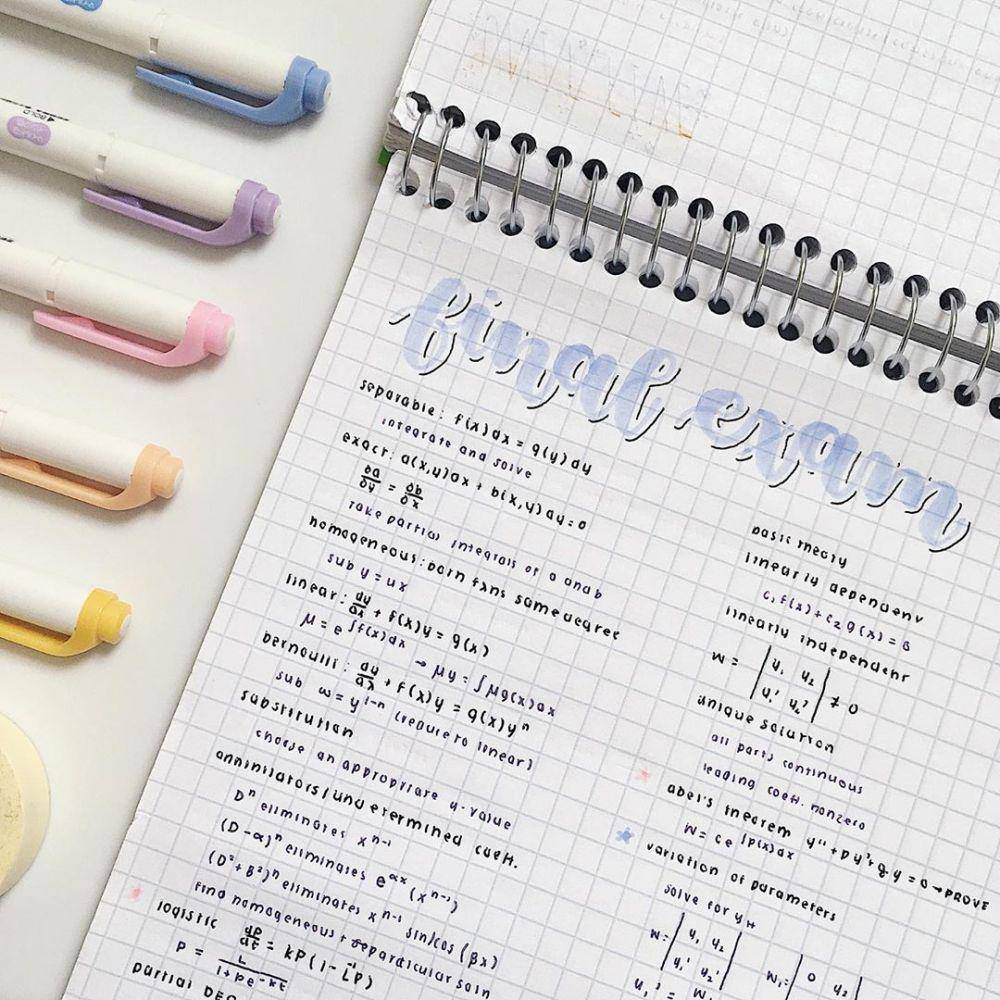 BOLD
final exam
separable: f(x)dx = g(y)dy
integrate and solve
exact: a(x,y)dx + b(x,y)dy = 0
∂a/∂y = ∂b/∂x
take partial integrals of a and b
homogeneous: both fxns same degree
sub y = ux
linear: dy/dx + f(x)y = g(x)
μ = e^∫f(x)dx → μy = ∫μg(x)dx
bernoulli: dy/dx + f(x)y = g(x)y^n
sub w = y^(1-n) (reduce to linear)
substitution
choose an appropriate u-value
annihilators/undetermined coeff.
D^n eliminates x^(n-1)
(D-α)^n eliminates e^(αx) (x^(n-1))
(D²+β²)^n eliminates x^(n-1) sin/cos(βx)
find homogeneous + particular soln
logistic dP/dt = kP(1-L^-1P)
P = L/(1+be^(-kt))
partial DEQ
basic theory
linearly dependent
c₁f(x) + c₂g(x) = 0
linearly independent
W = |y₁ y₂|
|y₁' y₂'| ≠ 0
unique solution
all parts continuous
leading coeff. nonzero
abel's theorem y''+py'+qy=0→PROVE
W = ce^∫p(x)dx
variation of parameters
solve for yH
W = |y₁ y₂|
|y₁' y₂'|
W₁ = |0 y₂
u₁' =